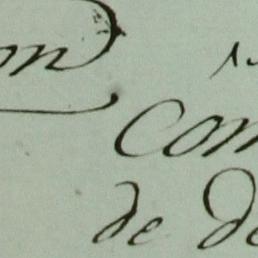 on
com
de de